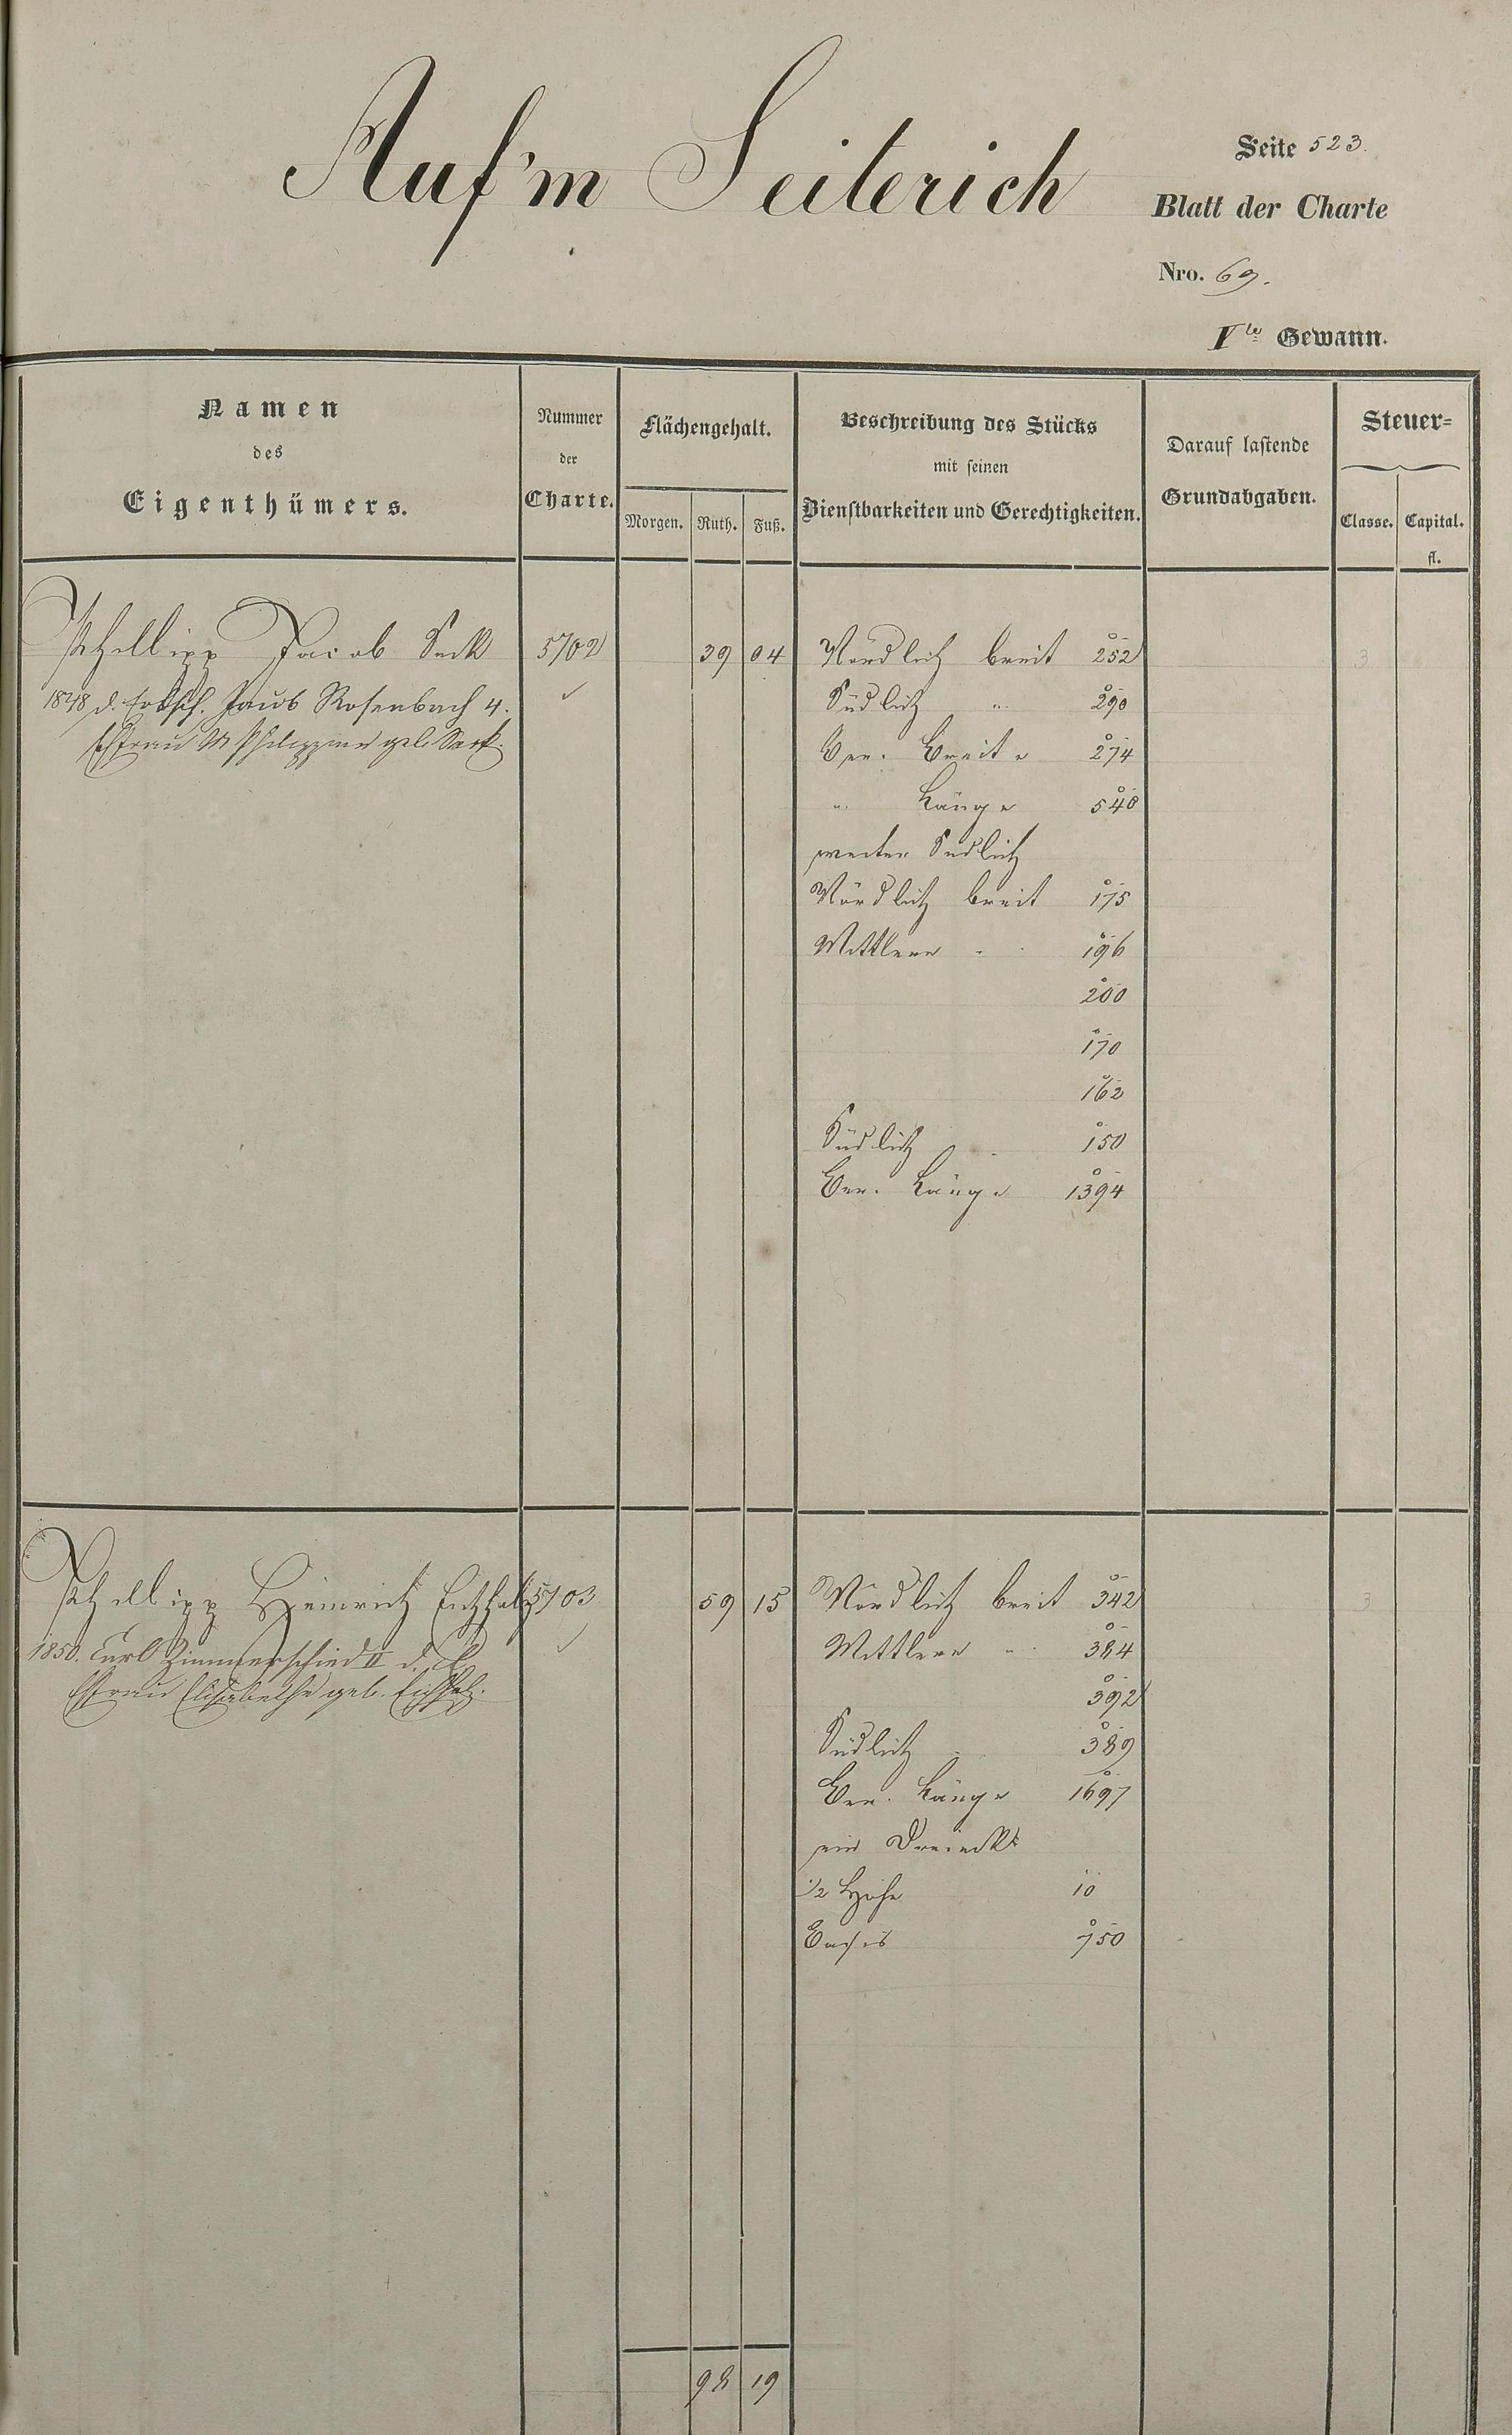 Auf'm Seiterich
Seite 523.
Blatt der Charte
Nro. 69.
Vte Gewann.
Namen
des
Eigenthümers.
Nummer
der
Charte.
Flächengehalt.
Morgen. Ruth. Fuß.
Beschreibung des Stücks
mit seinen
Dienstbarkeiten und Gerechtigkeiten.
Darauf lastende
Grundabgaben.
Steuer=
Classe. Capital.
fl.
Phillipp Jacob Seck 5702 39 04 Nördlich breit 252 3
1848 d. Erbsch. Jacob Rosenbach 4. ✓ Südlich " 290
Ehefrau M Philippine geb. Seck. Ver. Breite 274
" Länge 540
weiter Südlich
Nördlich breit 175
Mittlere " 196
200
170
162
Südlich " 150
Ver. Länge 1394
Phillipp Heinrich 5703 59 15 Nördlich breit 342 3
1850. Carl Zimmerschied II d. ✓ Mittlere " 384
Ehefrau Elisabethe geb. 392
Südlich " 389
Ver. Länge 1697
ein Dreieck
1/2 Höhe 10
Basis 750
98 19